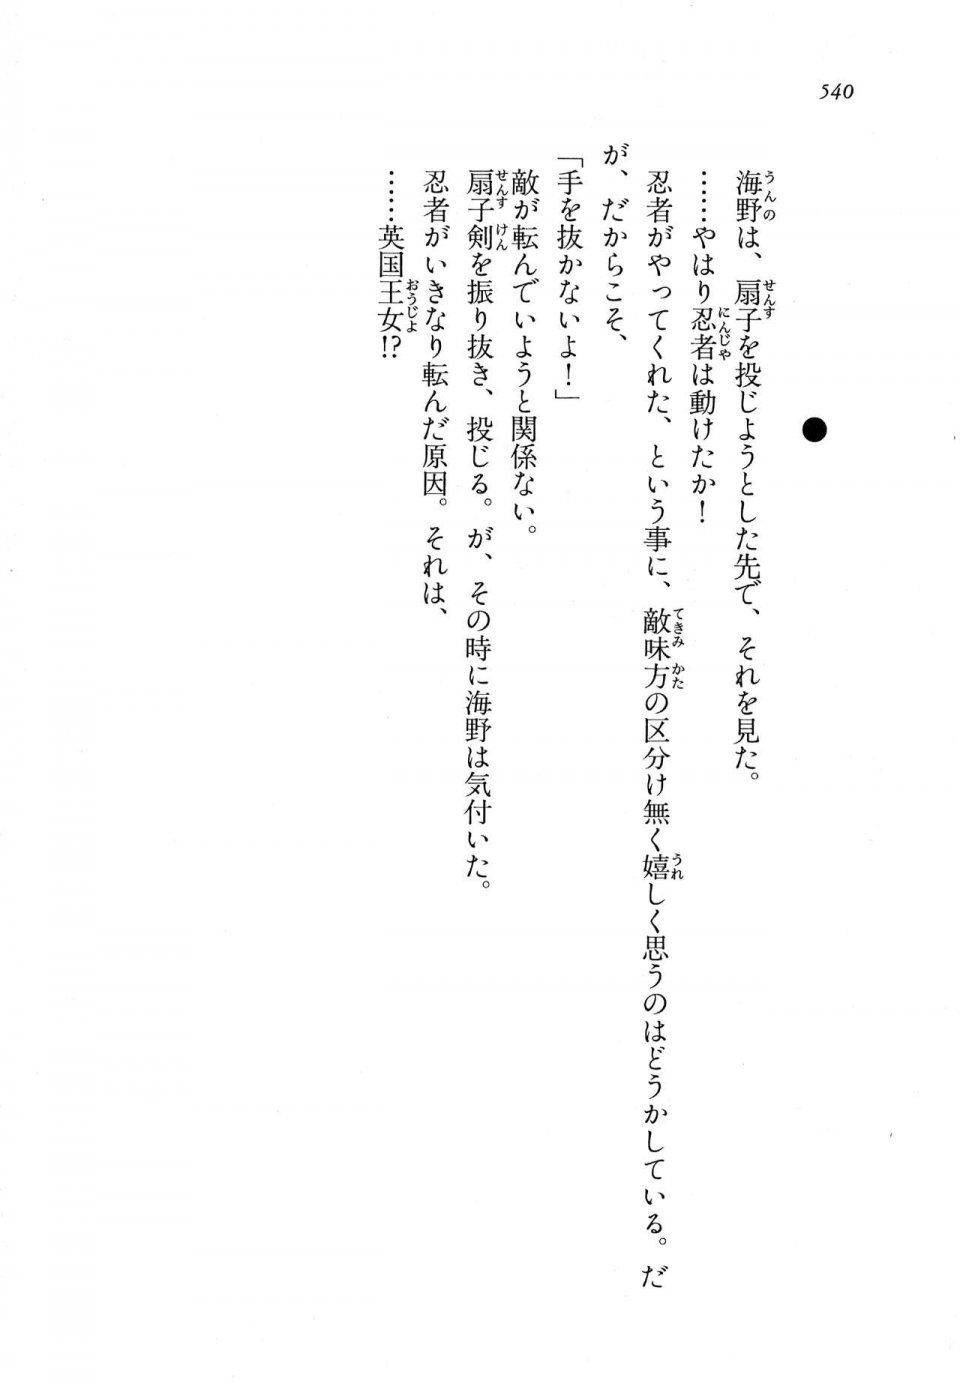 540
●
海野は、扇子を投じようとした先で、それを見た。
……やはり忍者は動けたか！
忍者がやってくれた、という事に、敵味方の区分け無く嬉しく思うのはどうかしている。だ
が、だからこそ、
「手を抜かないよ！」
敵が転んでいようと関係ない。
扇子剣を振り抜き、投じる。が、その時に海野は気付いた。
忍者がいきなり転んだ原因。それは、
……英国王女!?